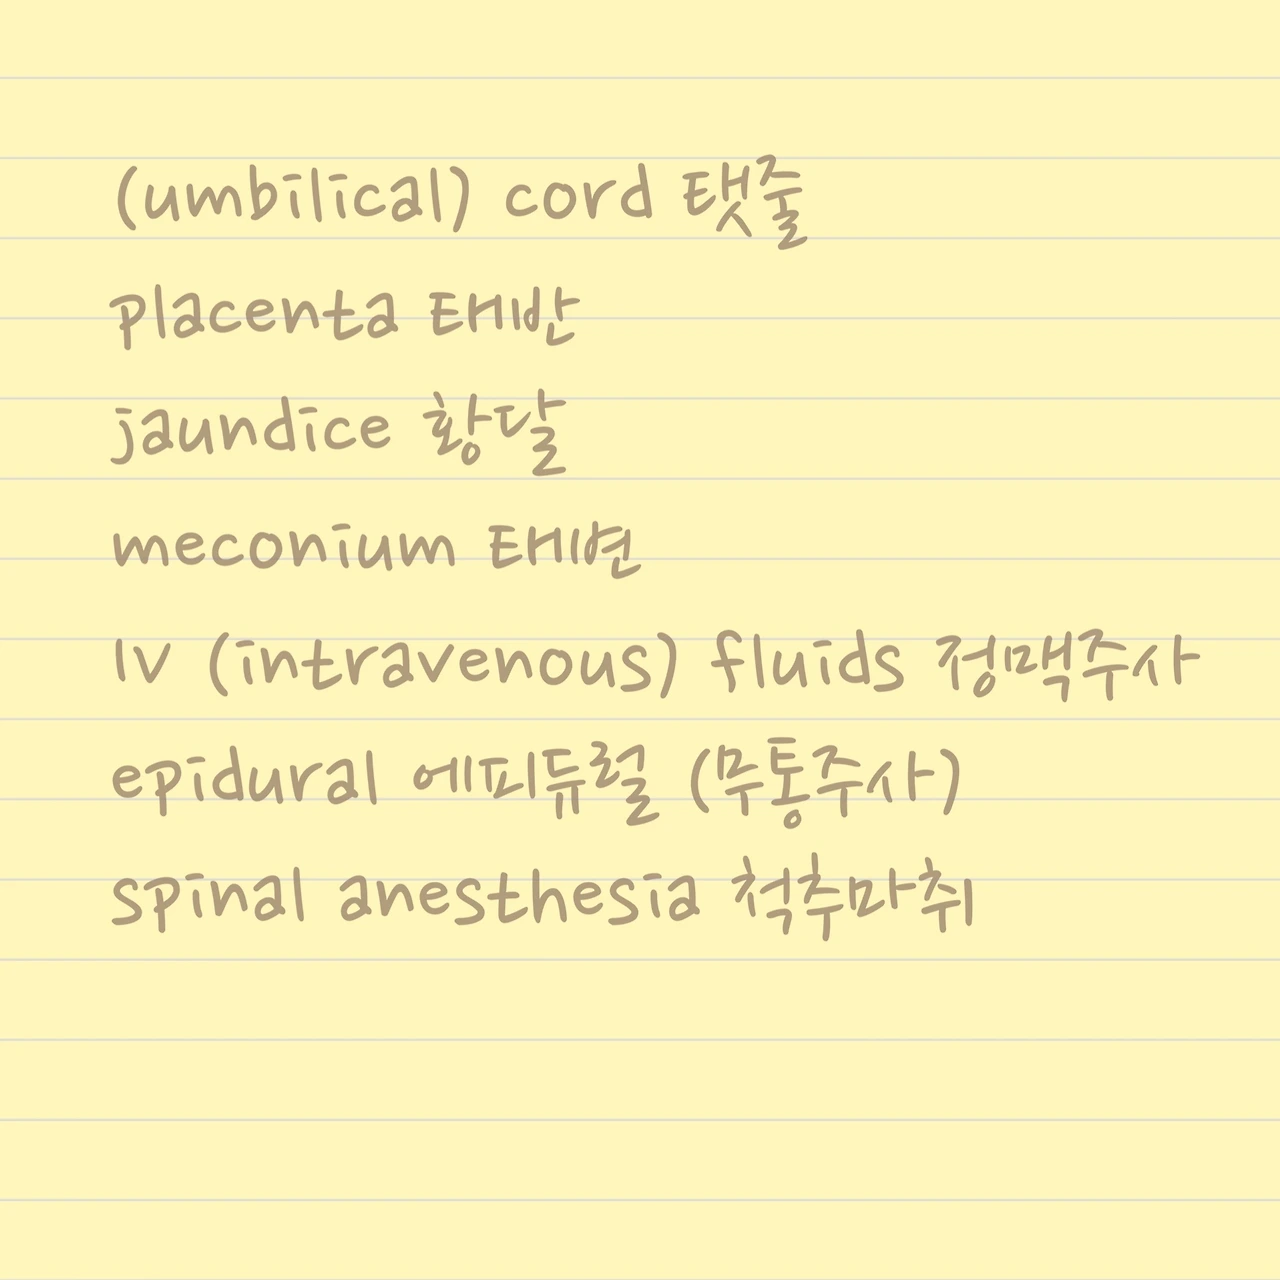 (umbilical) cord 탯줄
placenta 태반
jaundice 황달
meconium 태변
IV (intravenous) fluids 정맥주사
epidural 에피듀럴 (무통주사)
spinal anesthesia 척추마취